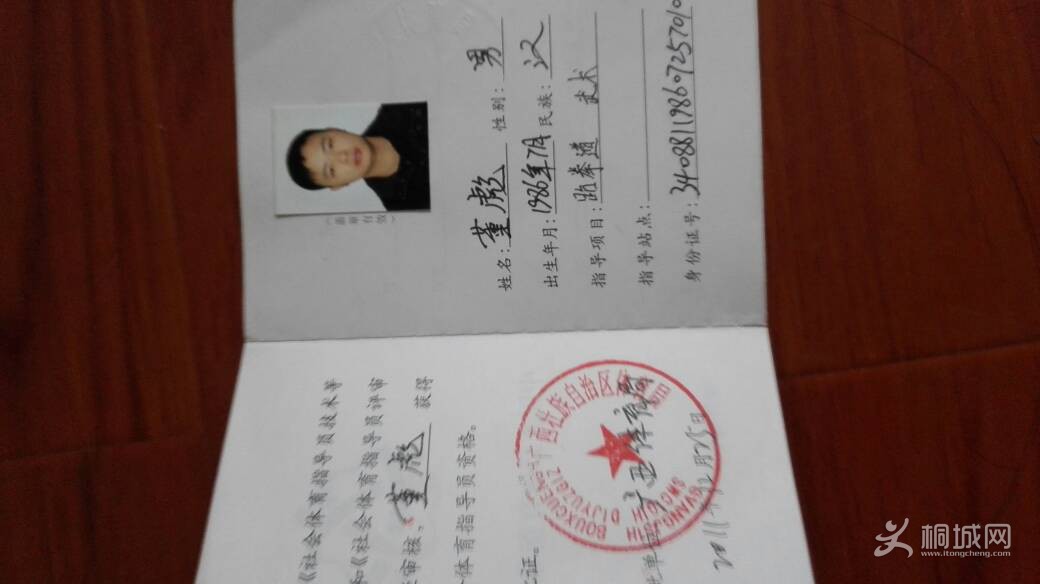 盖章有效
姓名：董彪 性别：男
出生年月：1986年7月 民族：汉
指导项目：跆拳道 武术
指导站点：
身份证号：34088119860725701
《社会体育指导员技术等
和《社会体育指导员评审
审核，董彪 获得
体育指导员资格。
证。
广西壮族自治区体育局
BOUXCUENGH
GVANGJSIH
DIJYUZGIZ
单 广西体育局
2011年12月15日
桐城网
www.itongcheng.com